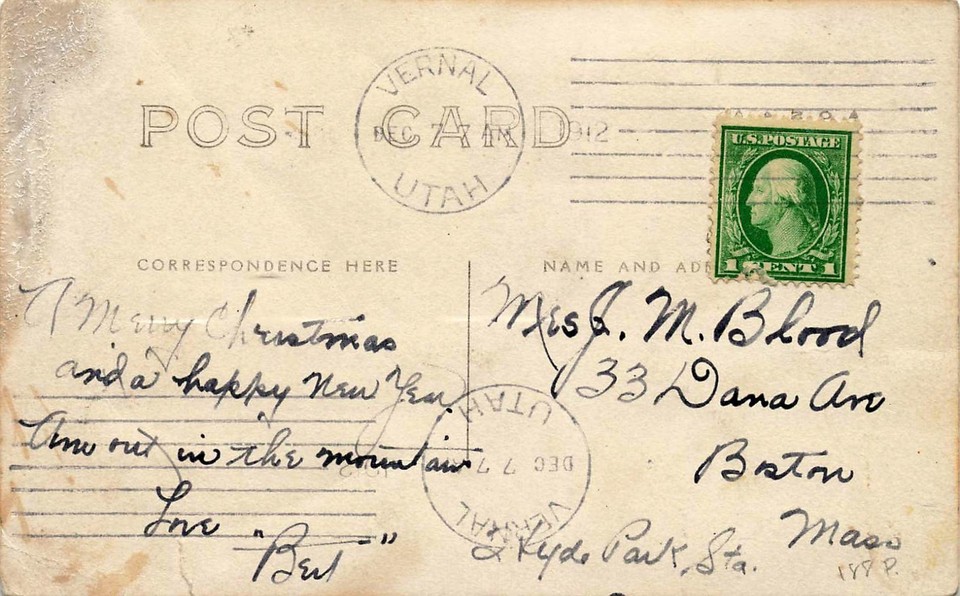 VERNAL
DEC 7 7 AM 1912
UTAH
POST CARD
U.S. POSTAGE
1 CENT 1
CORRESPONDENCE HERE
NAME AND ADD
A Merry Christmas
and a happy New Year
Am out in the mountains
Love
"Bert"
Mrs J. M. Blood
33 Dana Ave
Boston
Mass
Hyde Park, Sta.
VERNAL
DEC 7 7
UTAH